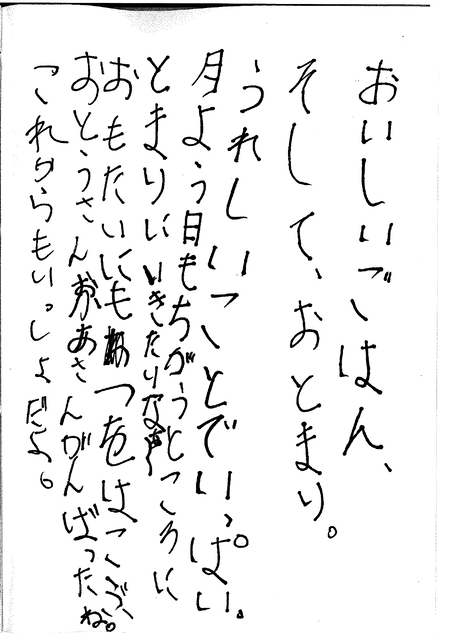 おいしいごはん、
そして、おとまり。
うれしいことでいっぱい。
月よう日もちがうところに
とまりにいきたいな
おもたいにもつをはこぶ、
おとうさんおかあさんがんばったね。
これからもいっしょだよ。